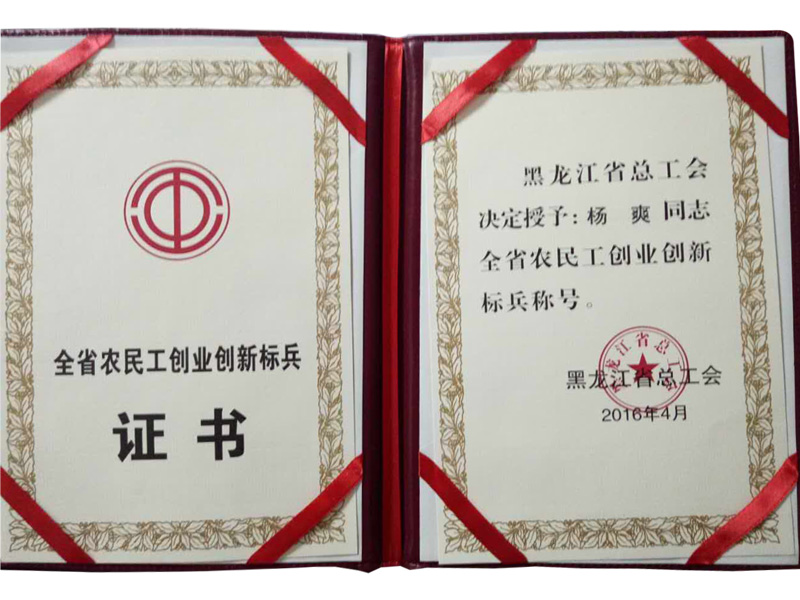 全省农民工创业创新标兵
证书
黑龙江省总工会
决定授予：杨 爽 同志
全省农民工创业创新
标兵称号。
黑龙江省总工会
黑龙江省总工会
2016年4月